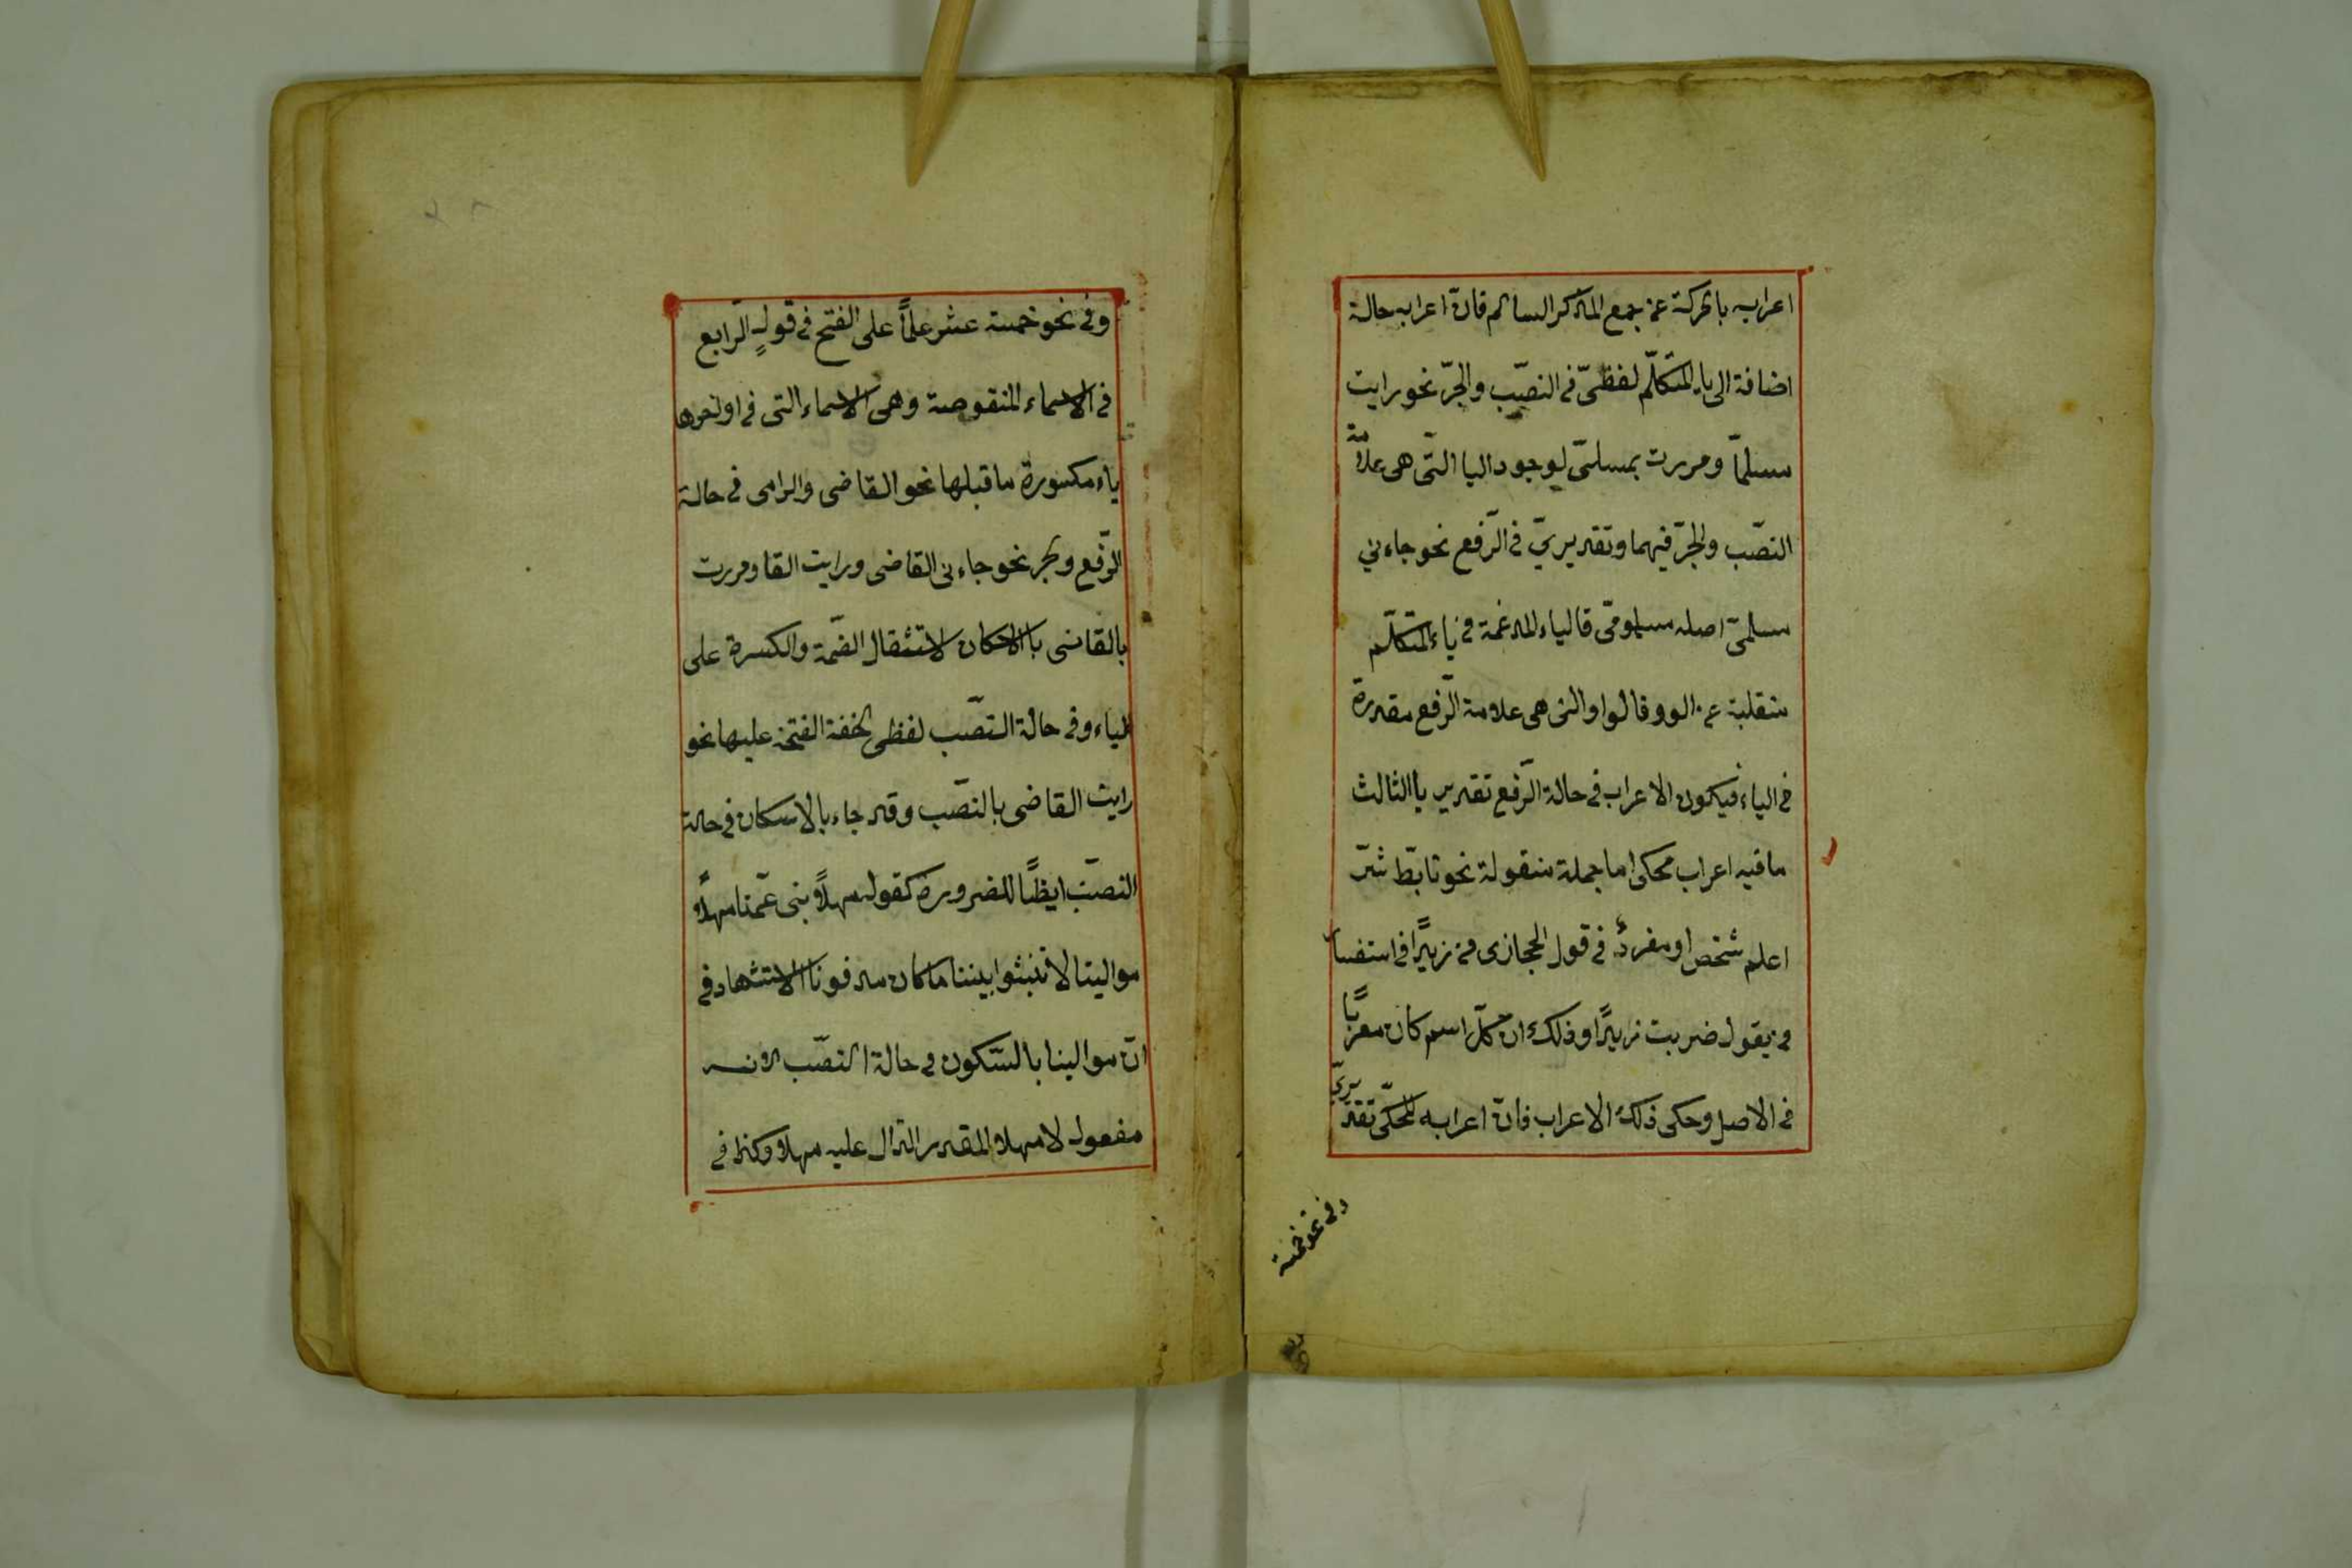 اعرابه بالحركة عن جمع المذكر السالم فانّ اعرابه حالة
اضافة الى ياء المتكلّم لفظىّ فى النصّب والجرّ نحو رايت
مسلمىّ ومررت بمسلمىّ لوجود اليا التّى هى علامة
النصّب والجرّ فيهما وتقديرىّ فى الرّفع نحو جاءنى
مسلمىّ اصله مسلموىّ فالياء المدغمة فى ياء المتكلّم
منقلبة عن الوو فالواو التى هى علامة الرّفع مقدرة
فى الياء فيكون الاعراب فى حالة الرّفع تقديريا الثالث
ما فيه اعراب محكى اما جملة منقولة نحو تابّط شرّ
اعلم شخص او مفردٌ فى قول الحجازى من زيدًا فى استفسار
من يقول ضربت زيدًا وذلك ان كلّ اسم كان معربًا
فى الاصل وحكى ذلك الاعراب فانّ اعرابه المحكّى تقديرىّ
وفى نحو خمسة
وفى نحو خمسة عشر علمًا على الفتح فى قولٍ الرّابع
فى الاسماء المنقوصة وهى الاسماء التى فى اواخرها
ياء مكسورة ما قبلها نحو القاضى والرامى فى حالة
الرّفع والجر نحو جاءنى القاضى ورايت القا ومررت
بالقاضى بالاسكان لاستثقال الضّمة والكسرة على
الياء وفى حالة النصّب لفظى لخفة الفتحة عليها نحو
رايت القاضى بالنصّب وقد جاء بالاسكان فى حالة
النصّب ايظًا للضرورة كقوله مهلاً بنى عمّنا مهلاً
موالينا لا تنبثوا بيننا ما كان مدفونا الاستشهاد فى
انّ موالينا بالسّكون فى حالة النصّب لانه
مفعول لا مهلا المقدر الدّال عليه مهلا وكذا فى